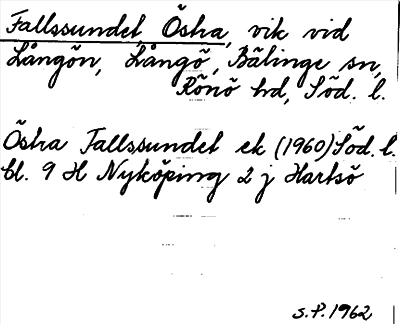 Fallssundet Östra, vik vid
Långön, Långö, Bälinge sn,
Rönö hd, Söd. l.
Östra Fallssundet ek (1960) Söd. l.
bl. 9 H Nyköping 2 j Hartsö
S.P. 1962